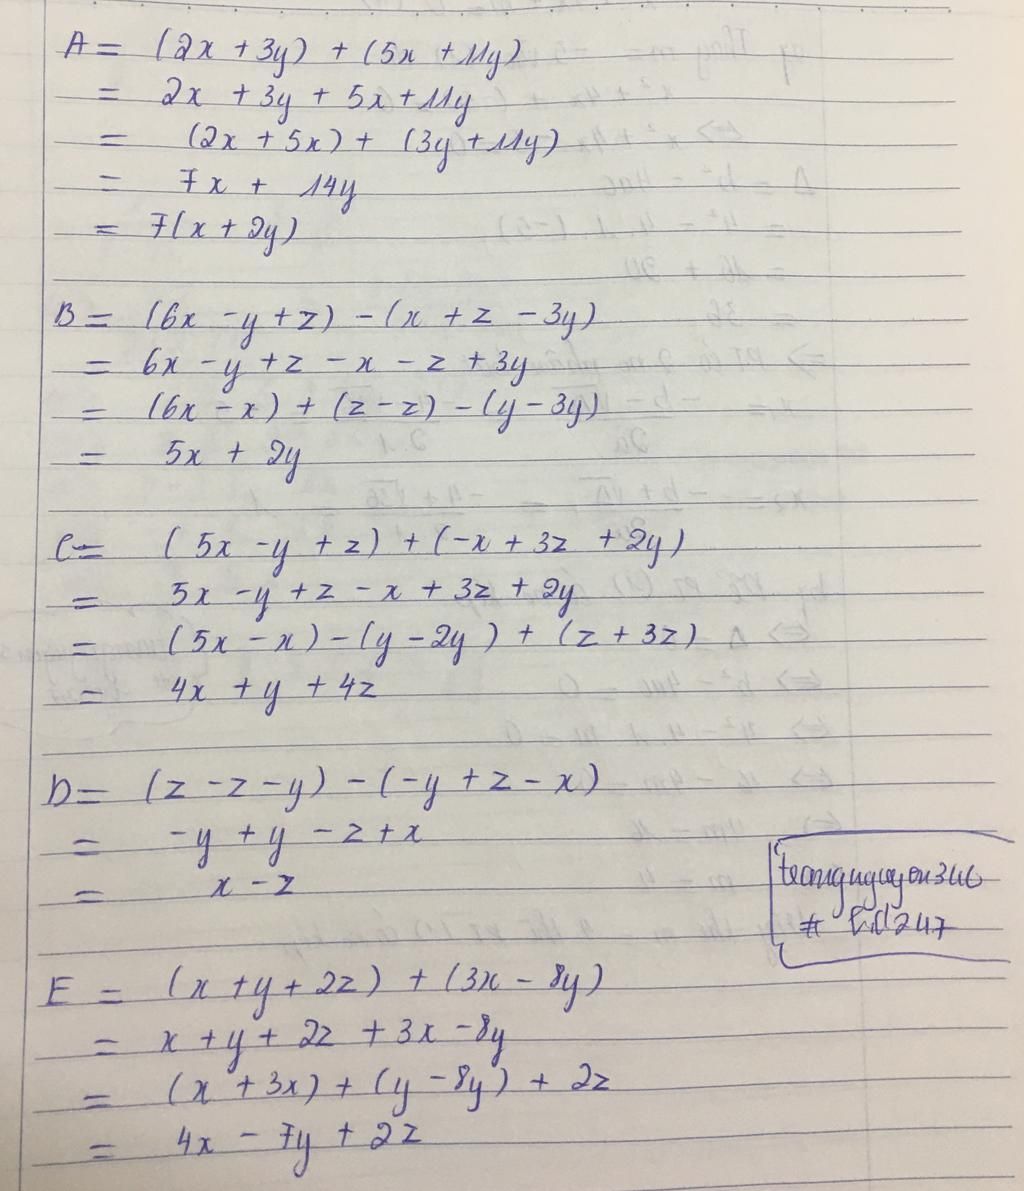 A = (2x + 3y) + (5x + 11y)
= 2x + 3y + 5x + 11y
= (2x + 5x) + (3y + 11y)
= 7x + 14y
= 7(x + 2y)
B = (6x - y + z) - (x + z - 3y)
= 6x - y + z - x - z + 3y
= (6x - x) + (z - z) - (y - 3y)
= 5x + 2y
C = (5x - y + z) + (-x + 3z + 2y)
= 5x - y + z - x + 3z + 2y
= (5x - x) - (y - 2y) + (z + 3z)
= 4x + y + 4z
D = (z - z - y) - (-y + z - x)
= -y + y - z + x
= x - z
E = (x + y + 2z) + (3x - 8y)
= x + y + 2z + 3x - 8y
= (x + 3x) + (y - 8y) + 2z
= 4x - 7y + 2z